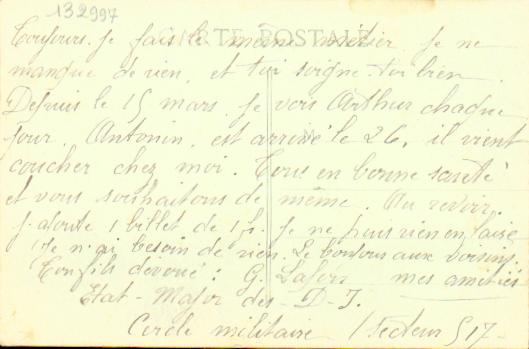 132997
CARTE POSTALE
Toujours je fais le même métier je ne
manque de rien, et toi soigne-toi bien
Depuis le 15 mars je vois Arthur chaque
jour. Antonin est arrivé le 26, il vient
coucher chez moi. Tous en bonne santé
et vous souhaitons de même. Au revoir.
j'ajoute 1 billet de 1 f. je ne puis rien en faire
je n'ai besoin de rien. Le bonjour aux voisins.
Ton fils dévoué : G. mes amitiés
Etat-Major des D-I.
Cercle militaire secteur 517